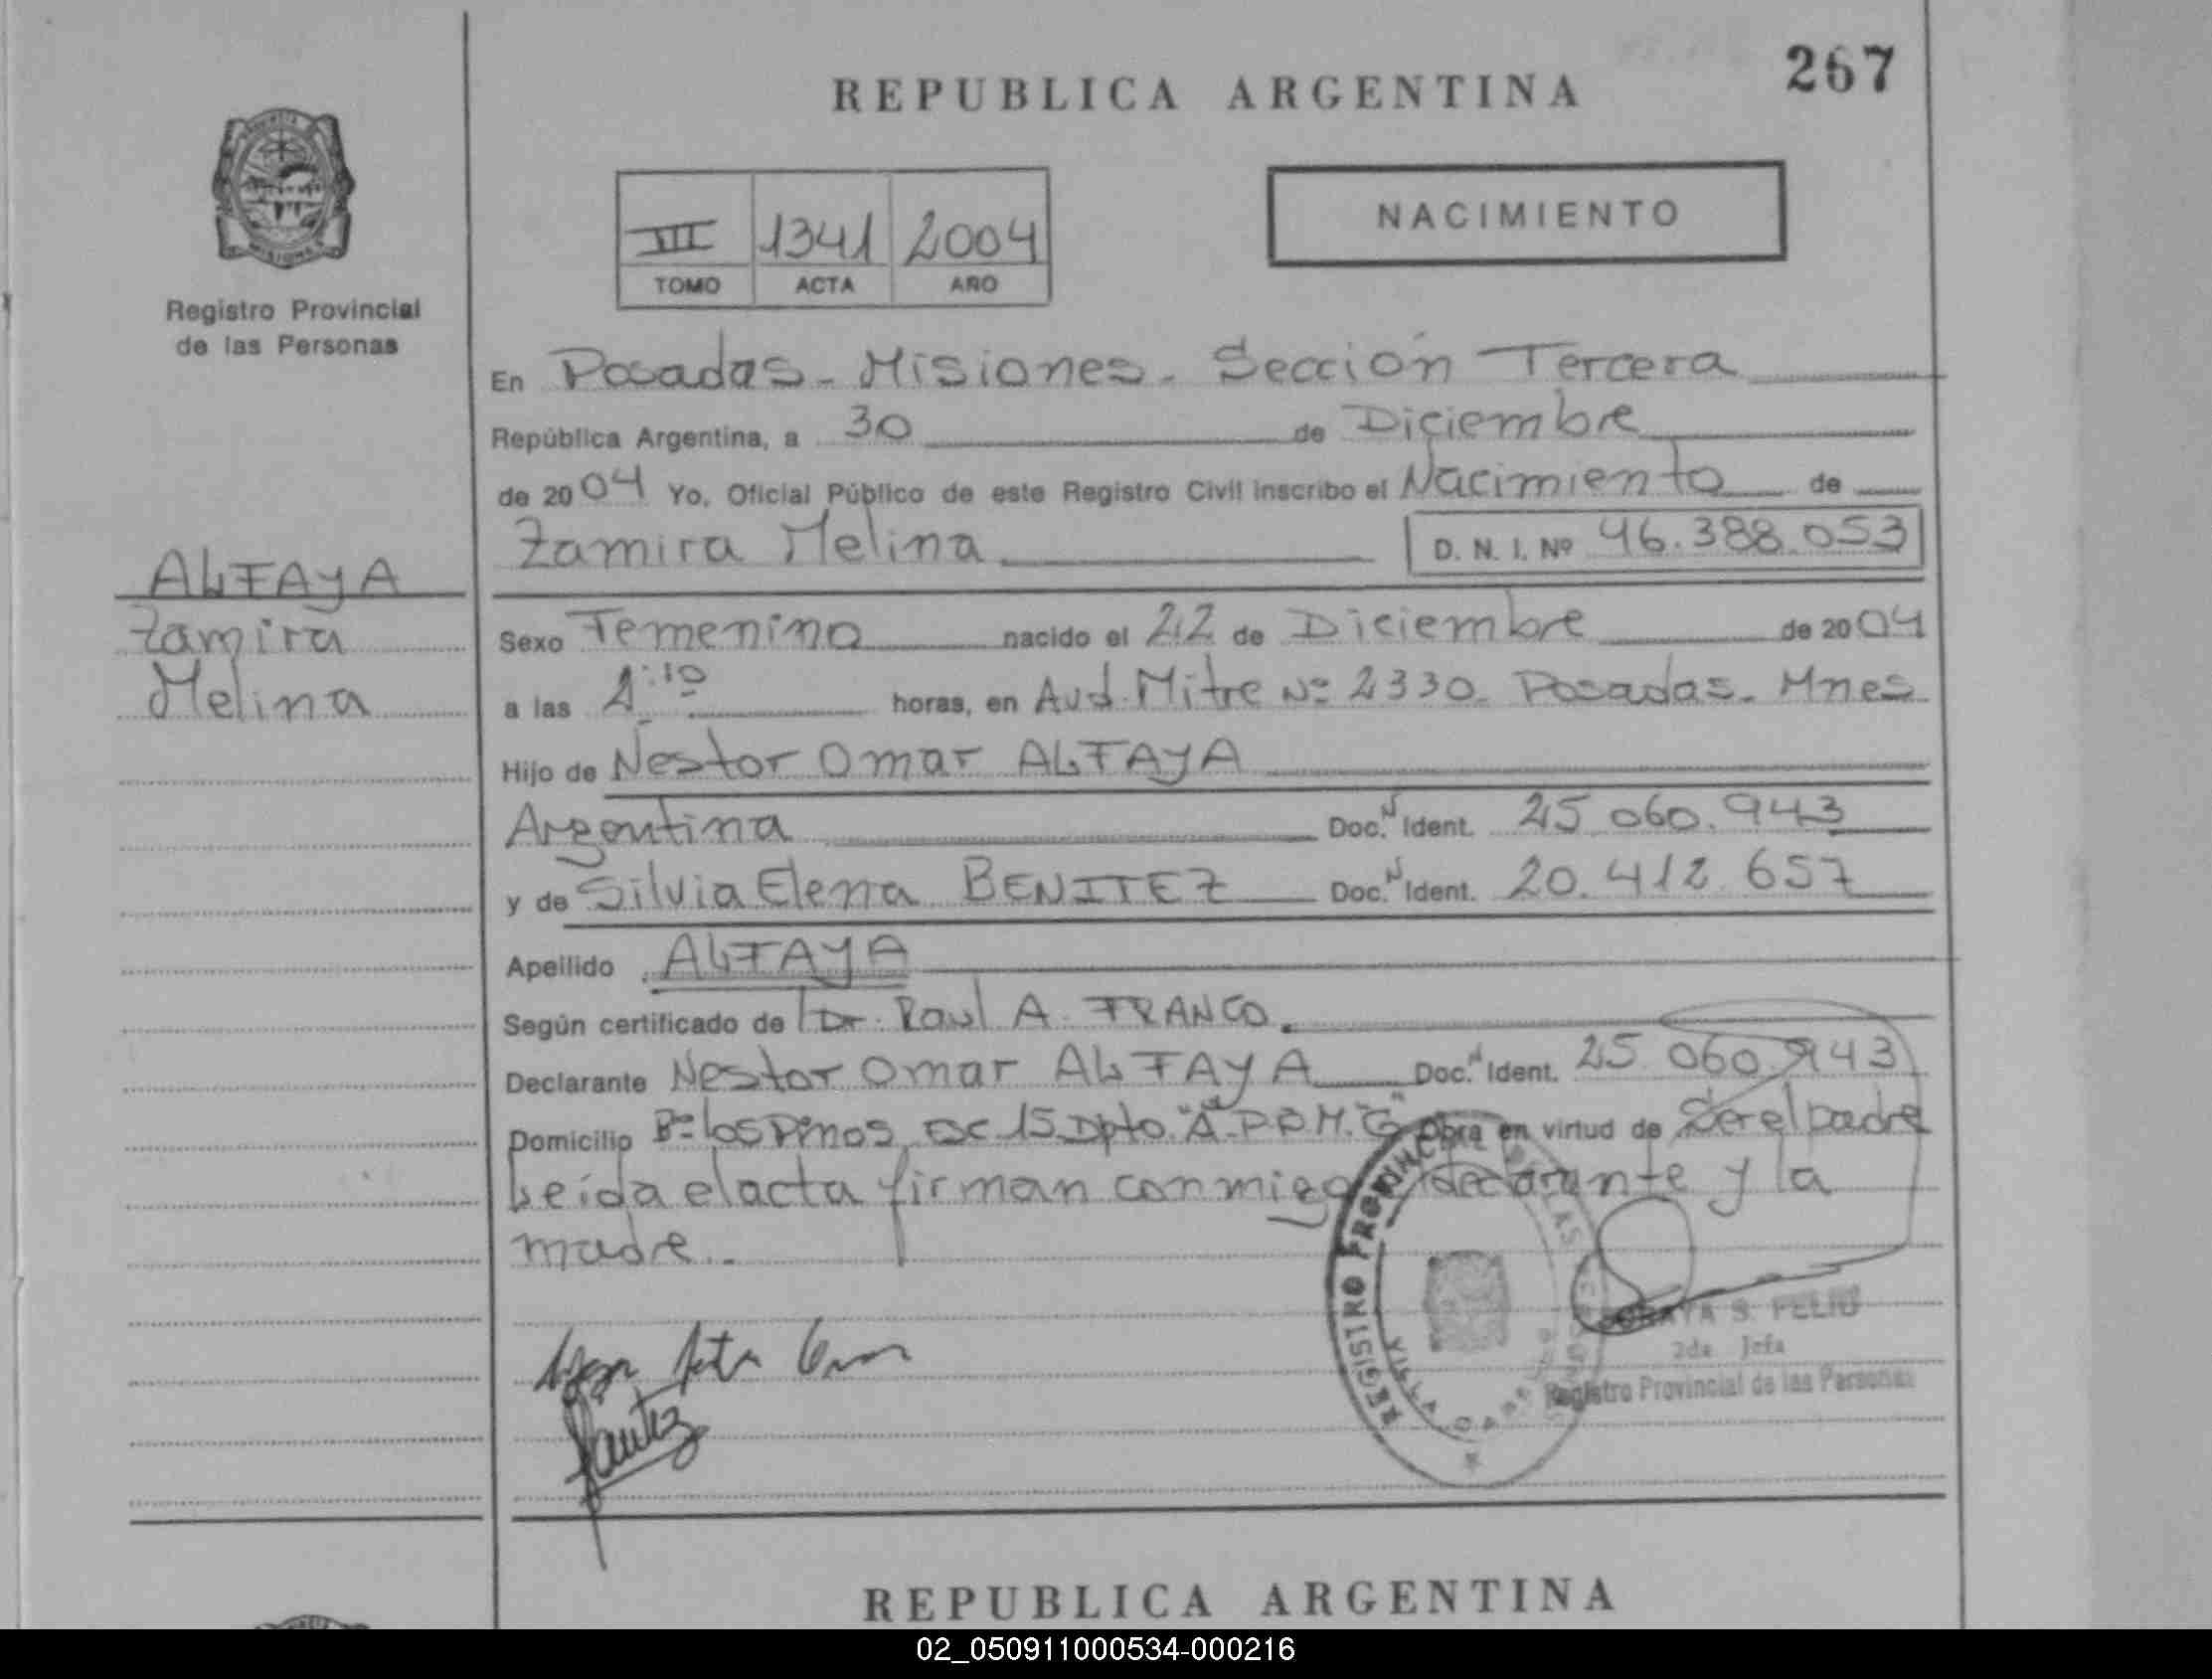 REPUBLICA ARGENTINA
267
Registro Provincial
de las Personas
III 1341 2004
TOMO ACTA AÑO
NACIMIENTO
En Posadas - Misiones - Sección Tercera
República Argentina, a 30 de Diciembre
de 2004 Yo, Oficial Público de este Registro Civil inscribo el Nacimiento de
Zamira Melina D. N. I. Nº 46.388.053
ALFAYA
Zamira
Melina
Sexo Femenino nacido el 22 de Diciembre de 2004
a las horas, en Avd. Mitre Nº 2330 - Posadas - Mnes
Hijo de Nestor Omar ALFAYA
Argentina Doc. N Ident. 25.060.943
y de Silvia Elena BENITEZ Doc. N Ident. 20.412.657
Apellido ALFAYA
Según certificado de Dr. Raul A. FRANCO.
Declarante Nestor Omar ALFAYA Doc. N Ident. 25.060.943
Domicilio Bº los Pinos Esc 15 Dpto. "A" P.B. M. "G" Obra en virtud de Ser el padre
Leída el acta firman conmigo declarante y la
madre.-
REGISTRO PROVINCIAL DE LAS
VILLA CABELLO
S. FELIU
2da. Jefa
Registro Provincial de las Personas
REPUBLICA ARGENTINA
02_050911000534-000216